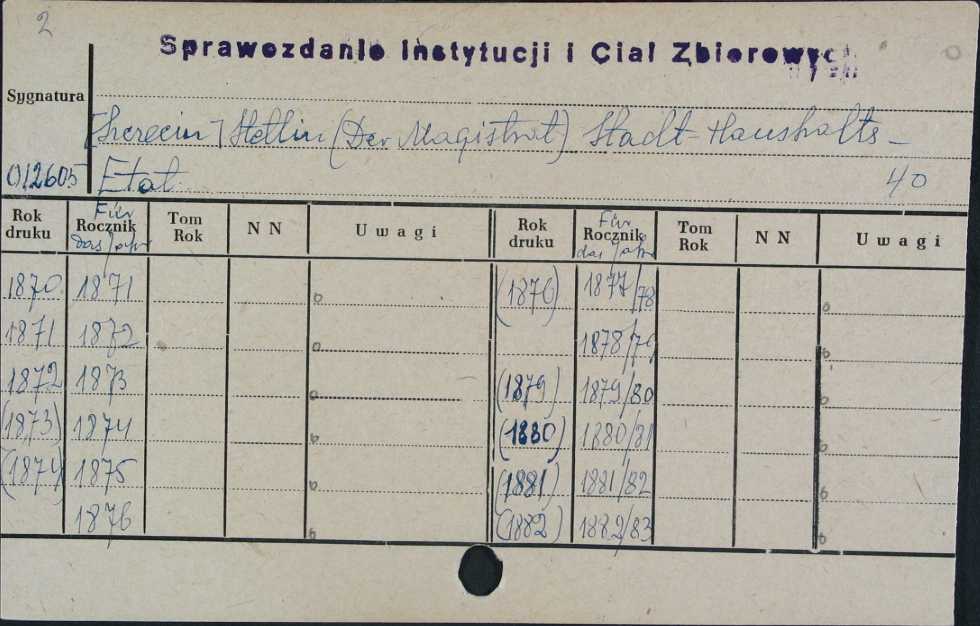 2
Sprawozdanie Instytucji i Ciał Zbiorowych
Sygnatura
[Szczecin] Stettin (Der Magistrat) Stadt-Haushalts-
012605 Etat. 40
Rok druku Für Rocznik das Jahr Tom Rok N N Uwagi Rok druku Für Rocznik das Jahr Tom Rok N N Uwagi
1870 1871 (1876) 1877/78
1871 1872 1878/79
1872 1873 (1879) 1879/80
(1873) 1874 (1880) 1880/81
(1874) 1875 (1881) 1881/82
1876 (1882) 1882/83